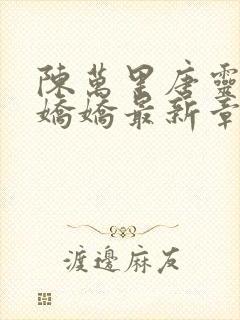 陳萬里唐靈
嬌嬌最新章
渡邊麻友